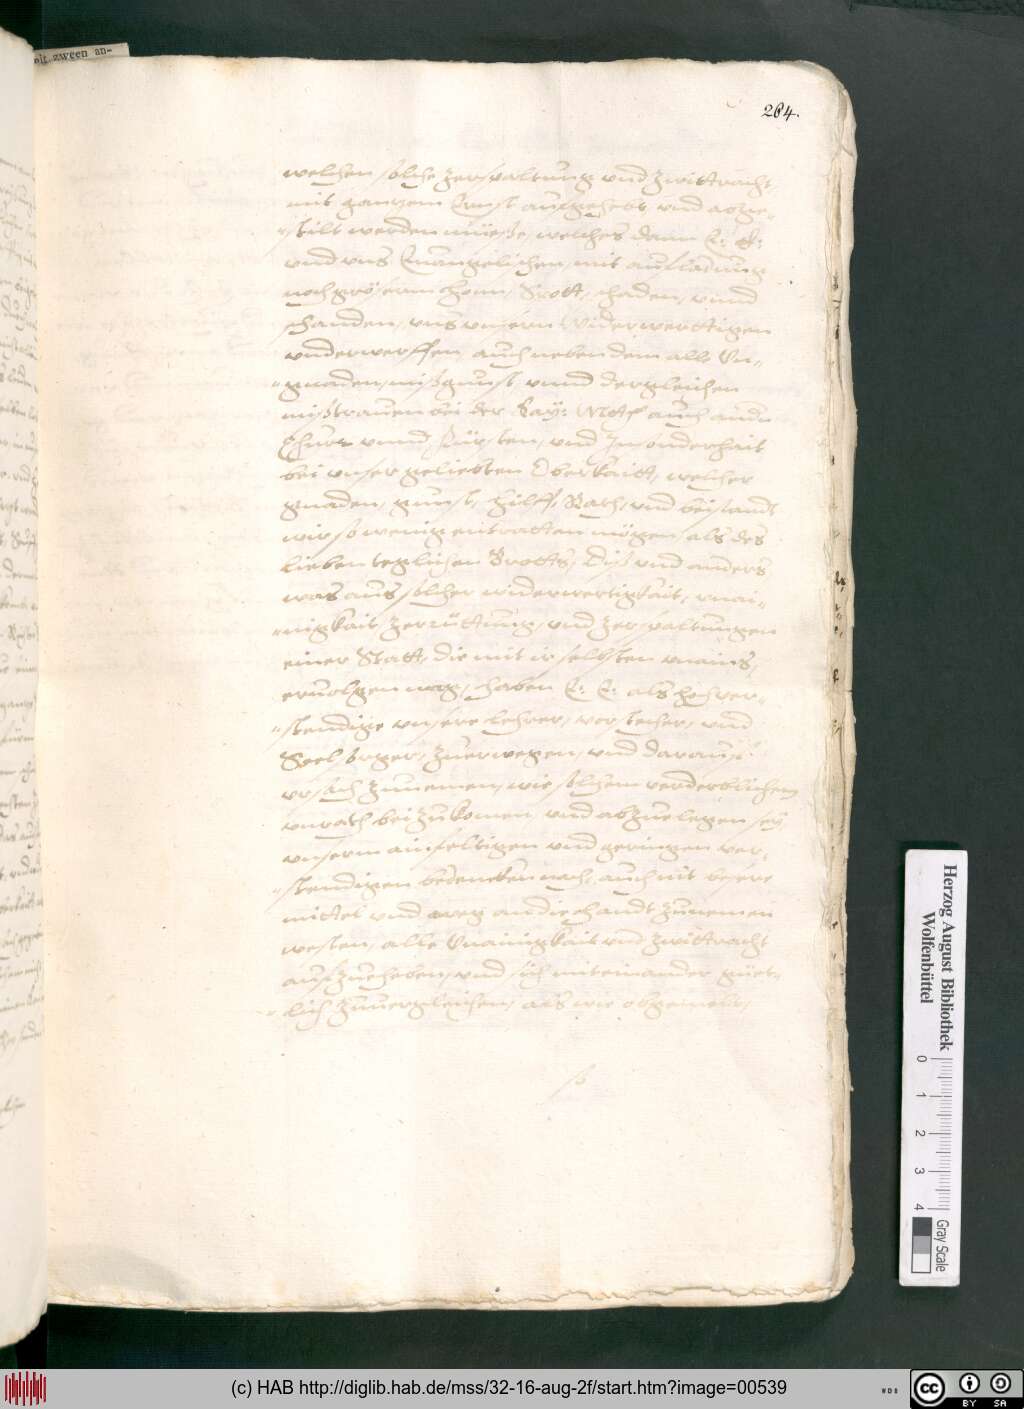 eit zween an-
264.
welchen solche zerspaltung und zwittracht,
mit gantzem Ernst aufgehebt und abge-
stilt werden müesse, welches dann E. E.
und uns Euangelischen, mit aufladung
noch grössern Hohn, Spott, schaden, unnd
schanden, uns unsern Widerwerttigen
underwerffen, auch neben dem alle Un-
gnaden, mißgunst, unnd dergleichen
mißtrauen bei der Kay: Mtt auch andn
Chur unnd Fürsten, und Insonderhait
bei unser geliebten Oberkaitt, welcher
gnaden, gunst, hilff, Rath, und beistandt
wir so wenig entratten mögen, als des
lieben teglichen Brotts, Diß und anders
was aus solcher widerwertigkait, unai-
nigkait, zerrüttung, und zerspaltungen
einer Statt, die mit ir selbsten unains,
ervolgen mag, haben E. E. als hochver-
stendige unsere Lehrer, vorsteher, und
Seelsorger, zuerwegen, und daraus
ursach zunemen, wie solchem verderblichem
unrath beizukomen, und abzuelegen sey
unserm ainfeltigen und geringen ver-
stendigen bedencken nach, auch nit bessere
mittel und weg an die handt zunemen
westen, alle Unainigkait und zwittracht
aufzueheben, und sich miteinander güet-
lich zuuergleichen, als wie obgemelt,
so
Herzog August Bibliothek
Wolfenbüttel
0 1 2 3 4
Gray Scale
(c) HAB http://diglib.hab.de/mss/32-16-aug-2f/start.htm?image=00539
WDB
CC BY SA